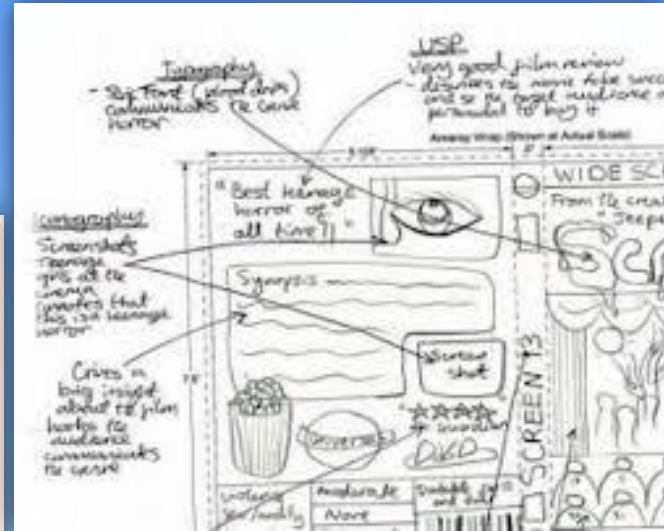 Typography
- Big Font (blood drips)
communicates the genre
horror
USP
Very good film review
- disguises the movie to be succ
and so the target audience a
persuaded to buy it
Amaray Wrap (Shown at Actual Scale)
"Best teenage
horror of
all time!!"
WIDE SC
From the crea
"Jeepe
Iconography
Screenshots
Teenage
girls at the
cinema
that
this is a teenage
horror
Synopsis
Screen
shot
Gives a
big insight
about the film
hooks the
audience
communicates
the genre
Universal
guardian
DVD
SCREEN 13
moderate
None
Suitable